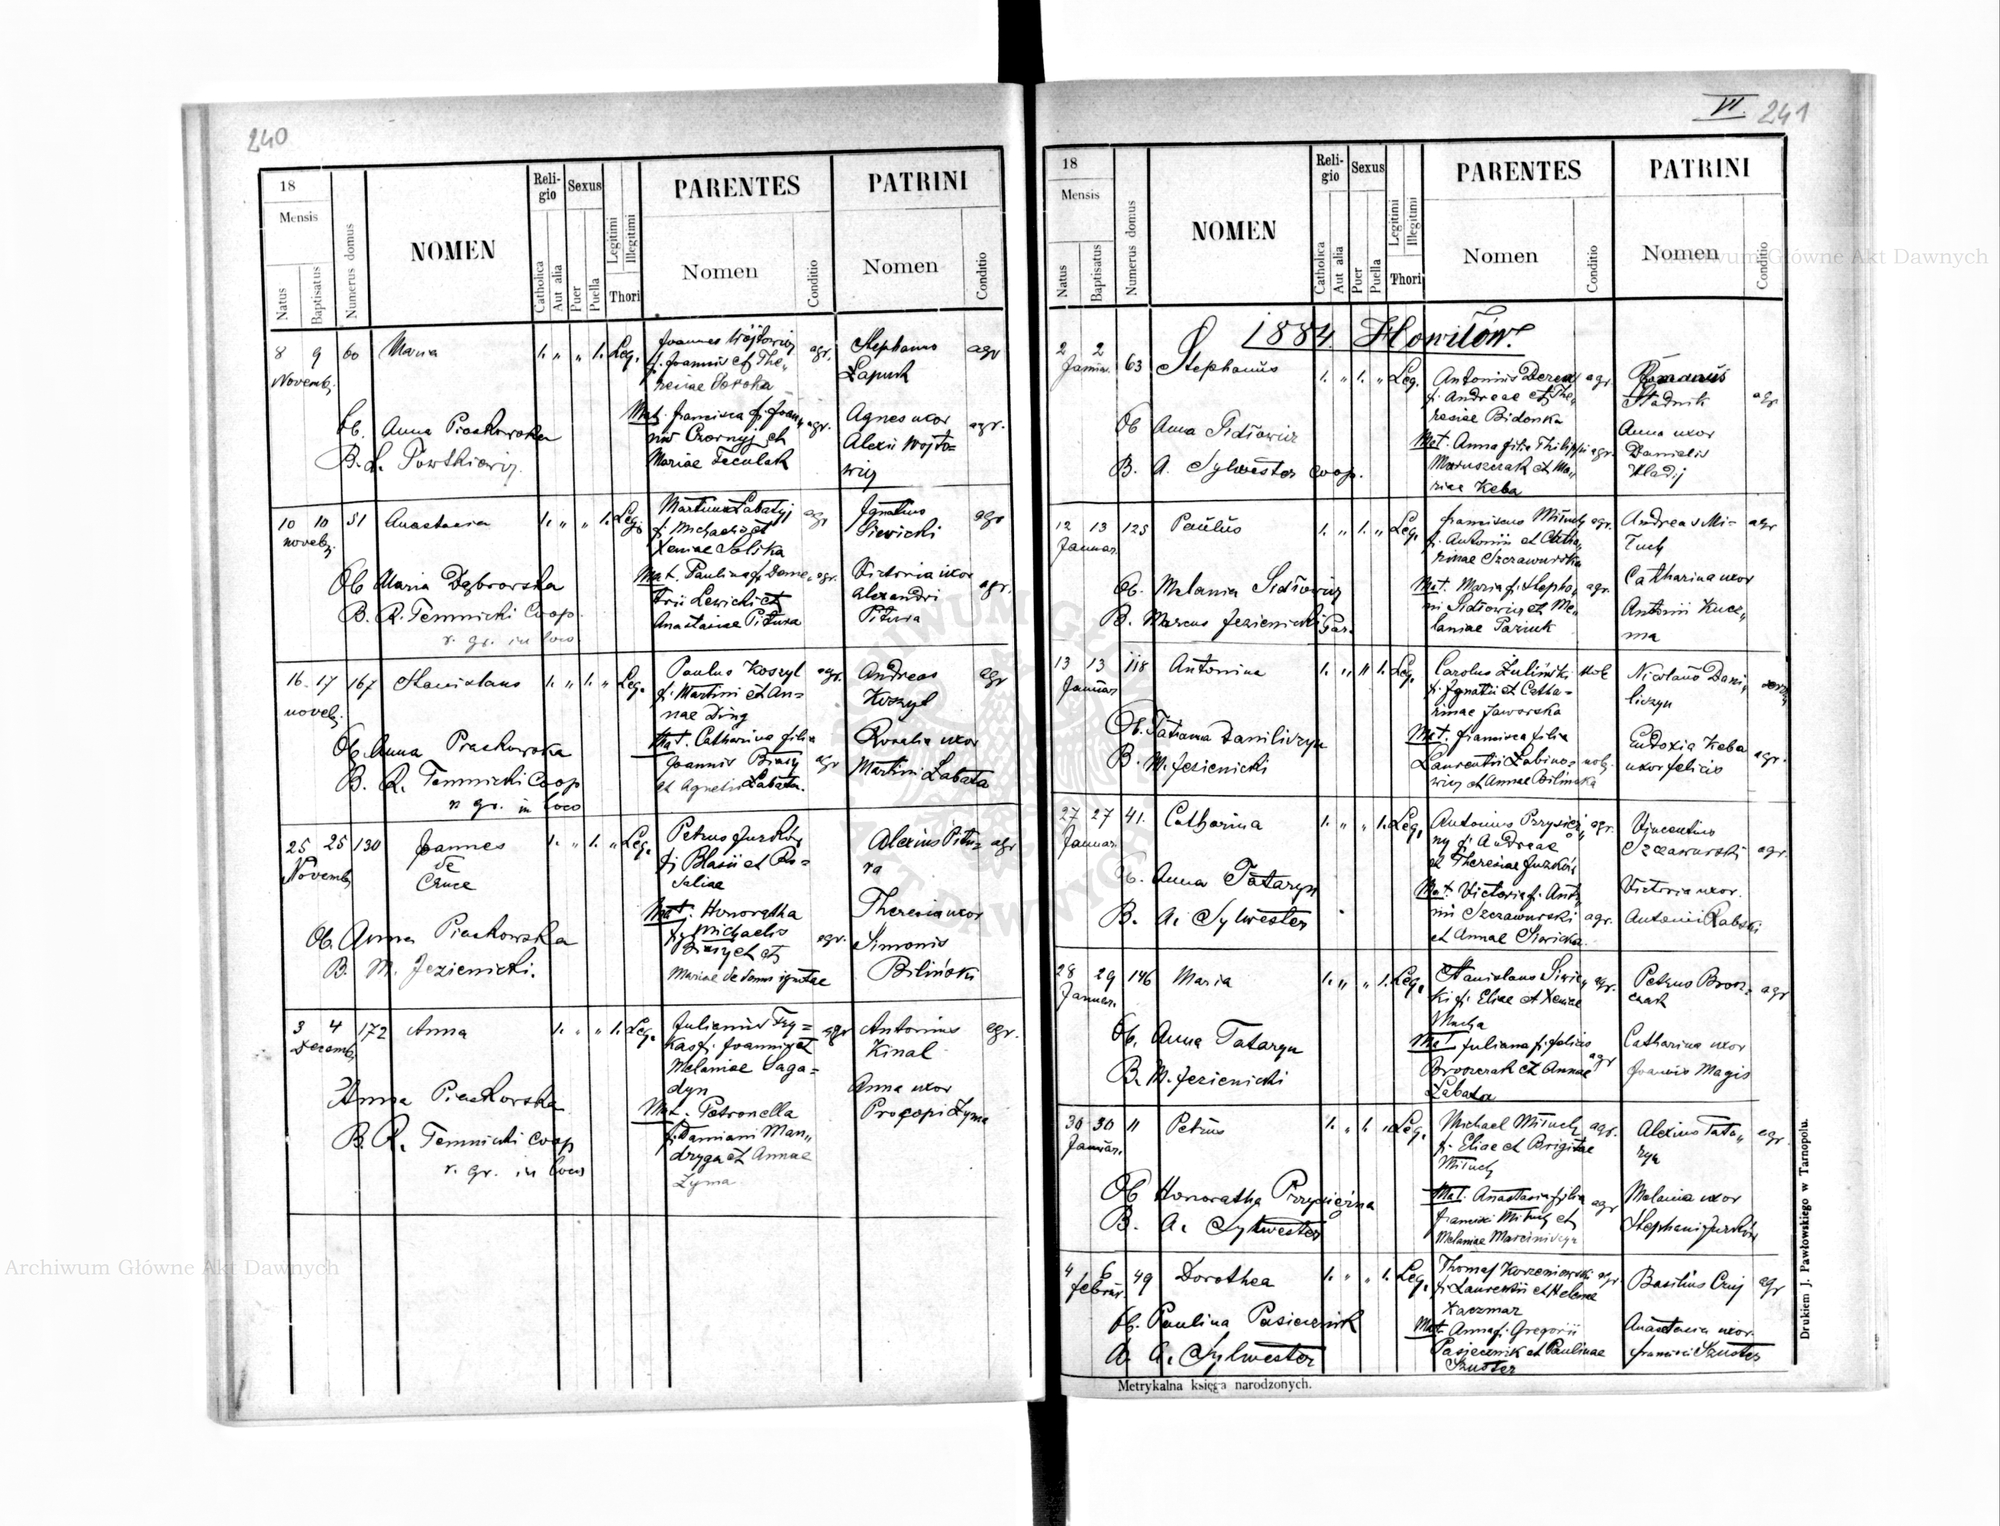 240
18
Mensis
Natus
Baptisatus
Numerus domus
NOMEN
Religio
Catholica
Aut alia
Sexus
Puer
Puella
Legitimi
Illegitimi
Thori
PARENTES
Nomen
Conditio
PATRINI
Nomen
Conditio
8 9 60 Maria 1. " " 1. Leg.
Novemb.
Joannes Wójtowicz agr.
f. Joannis et The-
resiae Soroka
Mat. Francisca f. Joan-
nis Czornyj et agr.
Mariae Feculak
Stephanus agr
Łapuch
Agnes uxor agr.
Alexii Wojto-
wicz
Ob. Anna Piaskowska
B. L.
10 10 51 Anastasia 1. " " 1. Leg.
novemb.
Martinus Łabatyj agr
f. Michaelis et
Xeniae Solska
Mat. Paulina f. Deme- agr.
trii Lewicki et
Anastasiae Pitura
Ignatius agr
Siewicki
Victoria uxor agr.
Alexandri
Pitura
Ob. Maria Dąbrowska
B. R. Temnicki Coop.
r. gr. in loco
16 17 167 Stanislaus 1. " 1. " Leg.
novemb.
Paulus Koszyl agr.
f. Martini et An-
nae Ding
Mat. Catharina filia
Joannis Biaszy agr
et Agnetis Łabata.
Andreas agr
Koszyl
Rosalia uxor
Martini Łabata
Ob. Anna Piaskowska
B. R. Temnicki Coop
r. gr. in loco
25 25 130 Joannes 1. " 1. " Leg.
Novemb.
de
Cruce
Petrus Jurków
f. Blasii et Ro-
saliae
Mat. Honoratha
f. Michaelis agr.
et
Mariae de domo ignotae
Alexius Pitu- agr
ra
Theresia uxor
Simonis
Biliński
Ob. Anna Piaskowska
B. M. Jezienicki.
3 4 172 Anna 1. " " 1. Leg.
Decemb.
Julianus Fry- agr
kas f. Joannis et
Melaniae Saga-
dyn
Mat. Petronella
f. Damiani Man-
dryga et Annae
Zyma
Antonius agr.
Kinal
Anna uxor
Procopi Zyma
Anna Piaskowska
B. R. Temnicki Coop
r. gr. in loco
VI. 241
18
Mensis
Natus
Baptisatus
Numerus domus
NOMEN
Religio
Catholica
Aut alia
Sexus
Puer
Puella
Legitimi
Illegitimi
Thori
PARENTES
Nomen
Conditio
PATRINI
Nomen
Conditio
1884 Howiłów.
2 2 63 Stephanus 1. " 1. " Leg.
Januar.
Antonius Derea agr.
f. Andreae et The-
resiae Bidonka
Mat. Anna filia Philippi agr.
Maruszczak et Ma-
riae Keba
Romanus
Stadnik agr
Anna uxor
Danielis
Hladij
Ob Anna Sidłowicz
B. A. Sylwester coop.
12 13 125 Paulus 1. " 1. " Leg.
Januar.
Franciscus Mituch agr.
f. Antonii et Catha-
rinae Szczawurska
Mat. Maria f. Stepha- agr.
ni Sidłowicz et Me-
laniae Pariuk
Andreas Mi- agr
tuch
Catharina uxor
Antonii Kucz-
ma
Ob. Melania Sidłowicz
B. Marcus Jezienicki Par.
13 13 118 Antonina 1. " " 1. Leg.
Januar.
Carolus Żuliński nob
f. Ignatii et Catha-
rinae Jaworska
Mat. Francisca filia
Laurentii Łabino- nob.
wicz et Annae Bilińska
Nicolaus Dani-
liczyn
Eudoxia Keba agr.
uxor Felicis
Ob. Tatiana Daniliczyn
B. M. Jezienicki
27 27 41. Catharina 1. " " 1. Leg.
Januar.
Antonius Przysięż- agr.
ny f. Andreae
et Theresiae Jurków
Mat. Victoria f. Anto-
nii Szczawurski agr.
et Annae Siwicka.
Vincentius
Szczawurski agr.
Victoria uxor.
Antonii Rabski
Ob. Anna Tataryn
B. A. Sylwester
28 29 146 Maria 1. " " 1. Leg.
Januar.
Stanislaus Siwic- agr.
ki f. Eliae et Xeniae
Mucha
Mat Juliana f. Felicis agr
Broszczak et Annae
Łabata
Petrus Brosz- agr
czak
Catharina uxor
Joannis Magis
Ob. Anna Tataryn
B. M. Jezienicki
30 30 11 Petrus 1. " 1. " Leg.
Januar.
Michael Mituch agr.
f. Eliae et Brigitae
Mituch
Mat. Anastasia filia agr
Francisci Mituch et
Melaniae Marciniczyn
Alexius Tata- agr.
ryn
Melania uxor
Stephani Jurków
Ob Honoratha Przysiężna
B. A. Sylwester
4 6 49 Dorothea 1. " " 1. Leg.
Februar.
Thomas Korzeniowski agr.
f. Laurentii et Helenae
Kaczmar
Mat. Anna f. Gregorii
Pasiecznik et Paulinae
Szuster
Basilius Czuj agr
Anastasia uxor
Francisci Szuster
Ob. Paulina Pasiecznik
A. Sylwester
Metrykalna księga narodzonych.
Drukiem J. Pawłowskiego w Tarnopolu.
Archiwum Główne Akt Dawnych
Archiwum Główne Akt Dawnych
ARCHIWUM GŁÓWNE AKT DAWNYCH